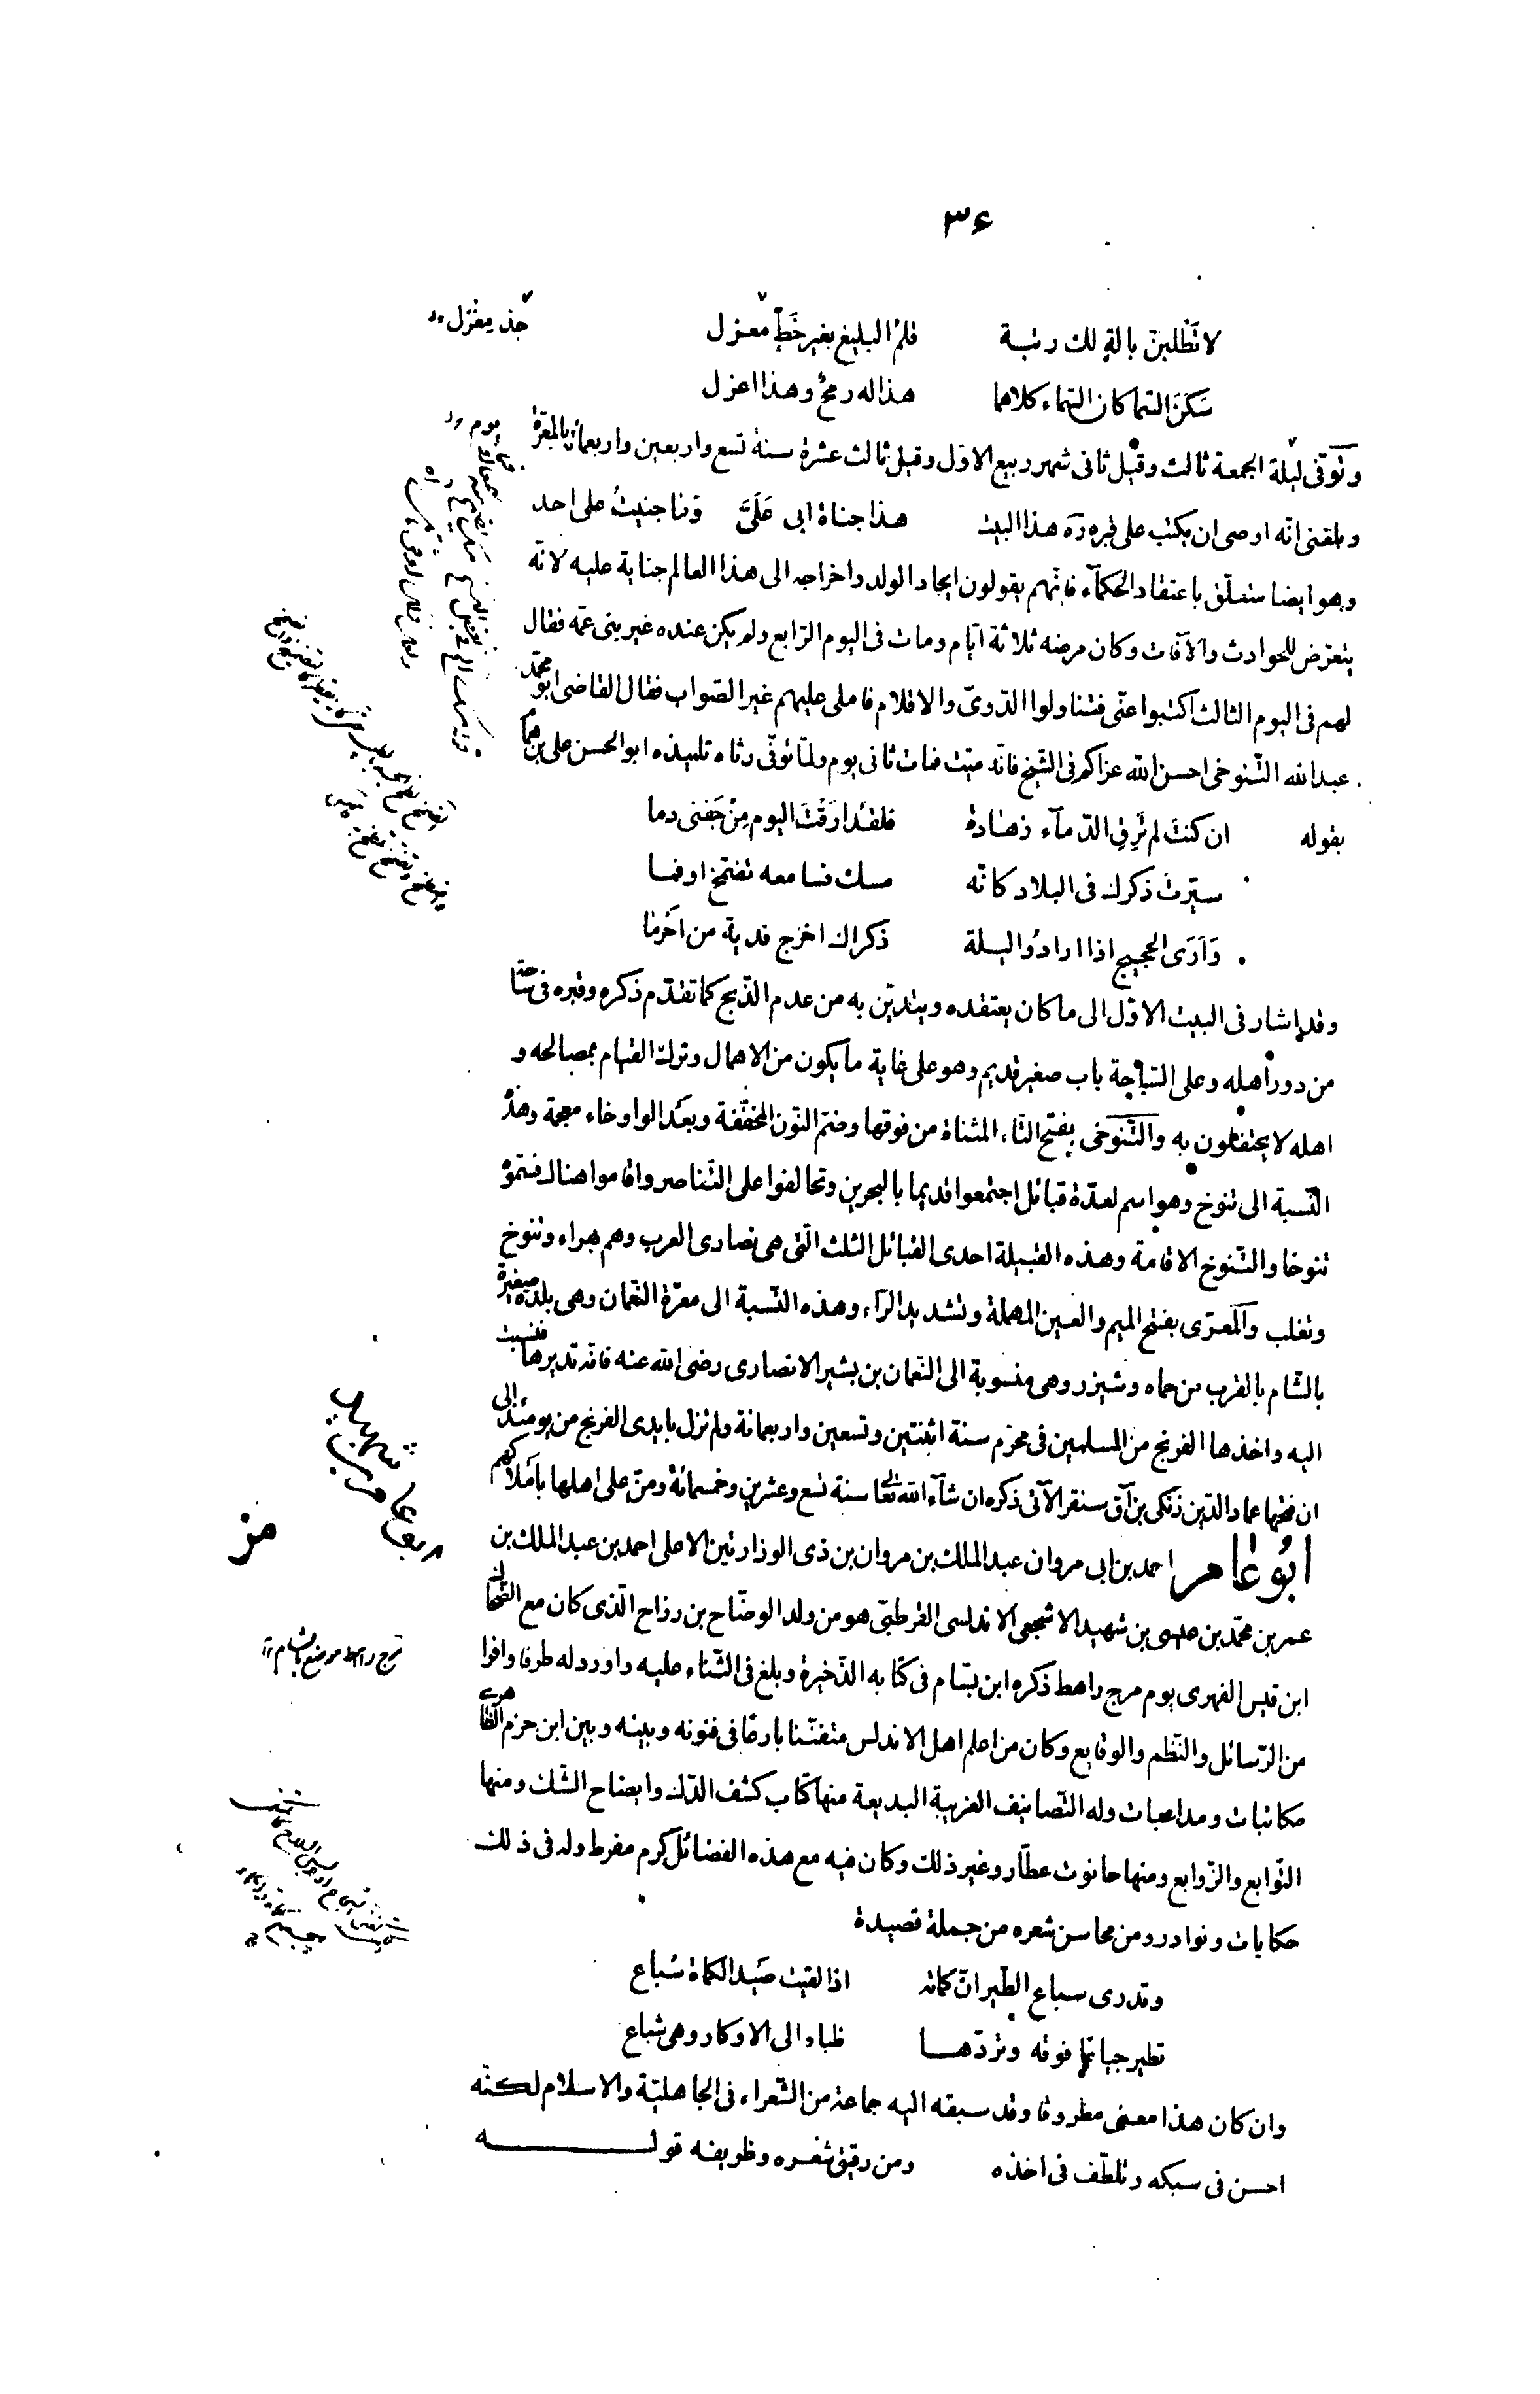 ٣۶
لا تَطْلبنّ بالةٍ لك رتبة قلمُ البليغ بغير خَطٍّ معزل
سَكَنَ السّماكان السّماء كلاهما هذا له رمحٌ وهذا اعزل
وتُوَفّى ليلة الجمعة ثالث وقيل ثانى شهر ربيع الاوّل وقيل ثالث عشرة سنة تسع واربعين واربعمائة بالمعرّة
وبلغنى انّه اوصى ان يكتب على قبره ره هذا البيت هذا جناة ابى عَلَىَّ وما جنيتُ على احد
وهو ايضا متعلّق باعتقاد الحكمآء فانّهم يقولون ايجاد الولد واخراجه الى هذا العالم جناية عليه لانّه
يتعرّض للحوادث والآفات وكان مرضه ثلاثة ايّام ومات فى اليوم الرّابع ولم يكن عنده غير بنى عمّه فقال
لهم فى اليوم الثالث اكتبوا عنّى فتناولوا الدّوىّ والاقلام فاملى عليهم غير الصّواب فقال القاضى ابو محمّد
عبد الله التّنوخى احسن الله عزاكم فى الشيخ فانّه ميّت فمات ثانى يوم ولمّا توفّى رثاه تلميذه ابو الحسن على بن همام
بقوله ان كنتَ لم تُرِقِ الدّمآء زهادة فلقد ارَقْتَ اليوم مِنْ جَفنى دما
سيّرتَ ذكرك فى البلاد كانّه مسك فسامعه تضمّخ او فما
وَاَرَى الحجيج اذا ارادُوا ليلة ذكراك اخرج فدية من اَحْرَما
وقد اشار فى البيت الاوّل الى ما كان يعتقده ويتديّن به من عدم الذّبح كما تقدّم ذكره وقبره فى ساحة
من دور اهله وعلى السّاحة باب صغير قديم وهو على غاية ما يكون من الاهمال وترك القيام بمصالحه و
اهله لا يحتفلون به والتّنوخى بفتح التّاء المثناة من فوقها وضم النّون المخفّفة وبعد الواو خاء معجمة وهذه
النّسبة الى تنوخ وهو اسم لعدّة قبائل اجتمعوا قديما بالبحرين وتحالفوا على التّناصر واقاموا هناك فسمّوا
تنوخا والتّنوخ الاقامة وهذه القبيلة احدى القبائل الثلث الّتى هى نصارى العرب وهم بهراء وتنوخ
وتغلب والمعرّى بفتح الميم والعين المهملة وتشديد الرّاء وهذه النّسبة الى معرّة النّعمان وهى بلدة صغيرة
بالشّام بالقرب من حماه وشيزر وهى منسوبة الى النّعمان بن بشير الانصارى رضى الله عنه فانّه تديرها فنسبت
اليه واخذها الفرنج من المسلمين فى محرّم سنة اثنتين وتسعين واربعمائة ولم تزل بايدى الفرنج من يومئذ الى
ان فتحها عماد الدّين زنكى بن آق سنقر الآتى ذكره ان شآء الله تعالى سنة تسع وعشرين وخمسمائة ومنّ على اهلها باملاكهم
ابُو عٰامر احمد بن ابى مروان عبد الملك بن مروان بن ذى الوزارتين الاعلى احمد بن عبد الملك بن
عمر بن محمّد بن عيسى بن شهيد الاشجعى الاندلسى القرطبىّ هو من ولد الوضّاح بن رزاح الّذى كان مع الضّحاك
ابن قيس الفهرى يوم مرج راهط ذكره ابن بسّام فى كتابه الذّخيرة وبلغ فى الثّناء عليه واورد له طرفا وافرا
من الرّسائل والنّظم والوقايع وكان من اعلم اهل الاندلس متفنّنا بارعًا فى فنونه وبينه وبين ابن حزم الظّاهرى
مكاتبات ومداعبات وله التّصانيف الغريبة البديعة منها كتاب كشف الدّك وايضاح الشّك ومنها
التّوابع والزّوابع ومنها حانوت عطّار وغير ذلك وكان فيه مع هذه الفضائل كرم مفرط وله فى ذلك
حكايات ونوادر ومن محاسن شعره من جملة قصيدة
وتدرى سباع الطّير انّ كماته اذا لقيت صَيد الكماة سُباع
تطير جياعا فوقه وتردّها ظباه الى الاوكار وهى شباع
وان كان هذا معنى مطروقا وقد سبقه اليه جماعة من الشّعراء فى الجاهليّة والاسلام لكنّه
احسن فى سبكه وتلطّف فى اخذه ومن رقيق شعره وظريفه قوله
ابو عامر بن شهيد
مرج راهط موضع بالشام